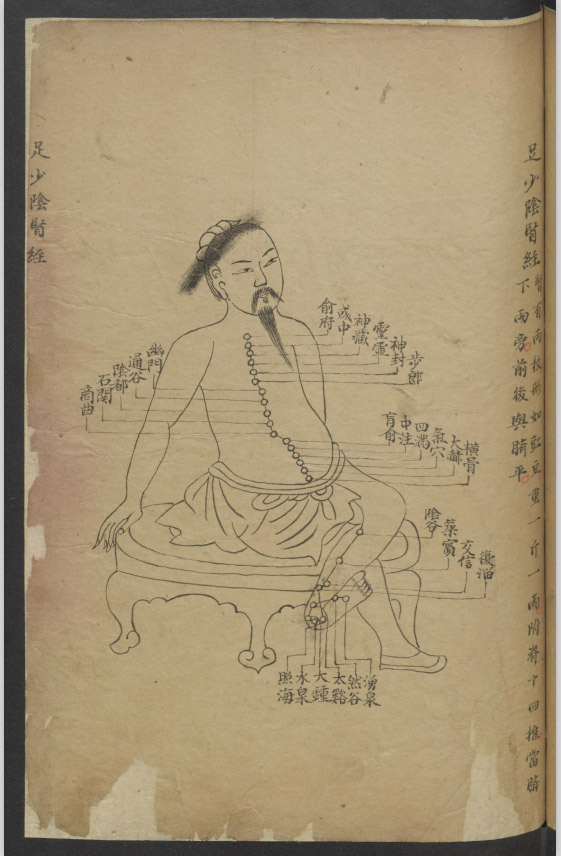 足少陰腎經
腎有兩枚形如豇豆重一斤一兩附脊十四椎當臍
下兩旁前後與臍平
步郎
神封
靈虛
神藏
或中
俞府
幽門
通谷
陰都
石関
商曲
橫骨
大赫
氣穴
四滿
中注
肓俞
復溜
交信
築賓
陰谷
湧泉
然谷
太谿
大鍾
水泉
照海
足少陰腎經